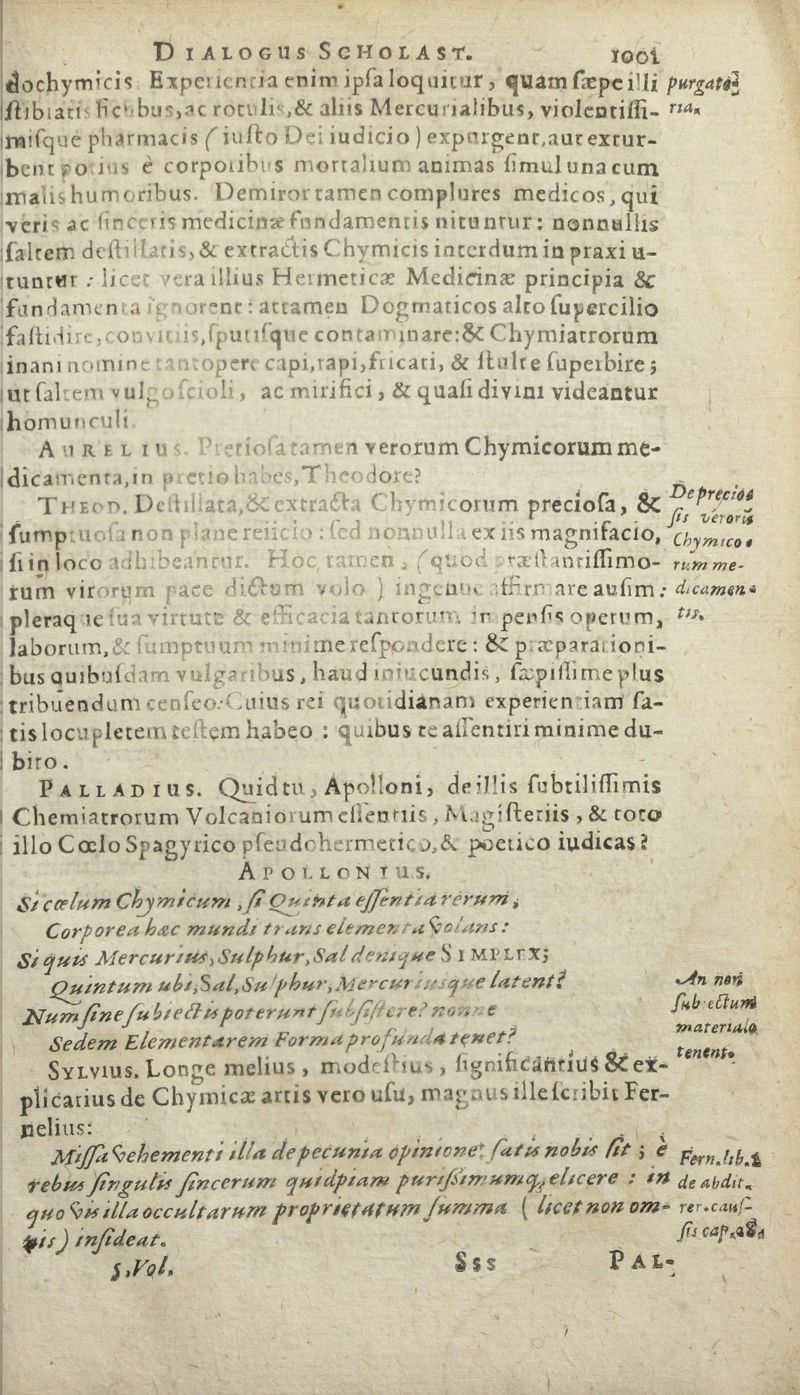 DIALOGUS SCHOLAST. 1001
dochymicis Experientia enim ipſa loquitur, quam ſæpe illi
ſtibiatis ficubus, ac rotulis, & aliis Mercurialibus, violentiſſi-
miſque pharmacis (iuſto Dei iudicio) expurgent, aut extur-
bent potius è corporibus mortalium animas ſimul una cum
malis humoribus. Demiror tamen complures medicos, qui
veris ac ſinceris medicinæ fundamentis nituntur: nonnullis
ſaltem deſtillatis, & extractis Chymicis interdum in praxi u-
tuntur : licet vera illius Hermeticæ Medicinæ principia &
fundamenta ignorent: attamen Dogmaticos alto ſupercilio
faſtidire, convitiis, ſputiſque contaminare: & Chymiatrorum
inani nomine tantopere capi, rapi, fricari, & ſtulte ſuperbire;
ut ſaltem vulgo ſcioli, ac mirifici, & quaſi divini videantur
homunculi.
AURELIUS. Pretioſa tamen verorum Chymicorum me-
dicamenta, in pretio habes, Theodore?
THEOD. Deſtillata, & extracta Chymicorum precioſa, &
ſumptuoſa non plane reiicio : ſed nonnulla ex iis magnifacio,
ſi in loco adhibeantur. Hoc tamen, (quod præſtantiſſimo-
rum virorum pace dictum volo) ingenue affirmare auſim:
pleraque ſua virtute & efficacia tantorum impenſis operum,
laborum, & ſumptuum minime reſpondere: & præparationi-
bus quibuſdam vulgaribus, haud iniucundis, ſæpiſſime plus
tribuendum cenſeo: Cuius rei quotidianam experientiam ſa-
tis locupletem teſtem habeo : quibus te aſſentiri minime du-
bito.
PALLADIUS. Quid tu, Apolloni, de illis ſubtiliſſimis
Chemiatrorum Volcaniorum eſſentiis, Magiſteriis, & toto
illo Cœlo Spagyrico pſeudohermetico, & poetico iudicas?
APOLLONIUS.
Si cœlum Chymicum, ſi Quinta eſſentia rerum,
Corporea hæc mundi trans elementa volans:
Si quis Mercurius, Sulphur, Sal denique SIMPLEX;
Quintum ubi, Sal, Sulphur, Mercuriusque latent?
Num ſine ſubiectis poterunt ſubſiſtere? nonne
Sedem Elementarem Forma profunda tenet?
SYLVIUS. Longe melius, modeſtius, ſignificantius & ex-
plicatius de Chymicæ artis vero uſu, magnus ille ſcribit Fer-
nelius:
Miſſa vehementi illa de pecunia opinione: ſatis nobis ſit ; è
rebus ſingulis ſincerum quidpiam puriſsimumq, elicere : in
quo vis illa occultarum proprietatum ſumma ( licet non om-
nis) inſideat.
5. Vol. Sss PAL-
purgato-
ria.
De precio-
ſis veroru
Chymico-
rum me-
dicamen-
tis.
An non
ſubiectum
materiale
tenent.
Fern. lib. 2
de abdit.
rer. cauſ-
ſis cap.